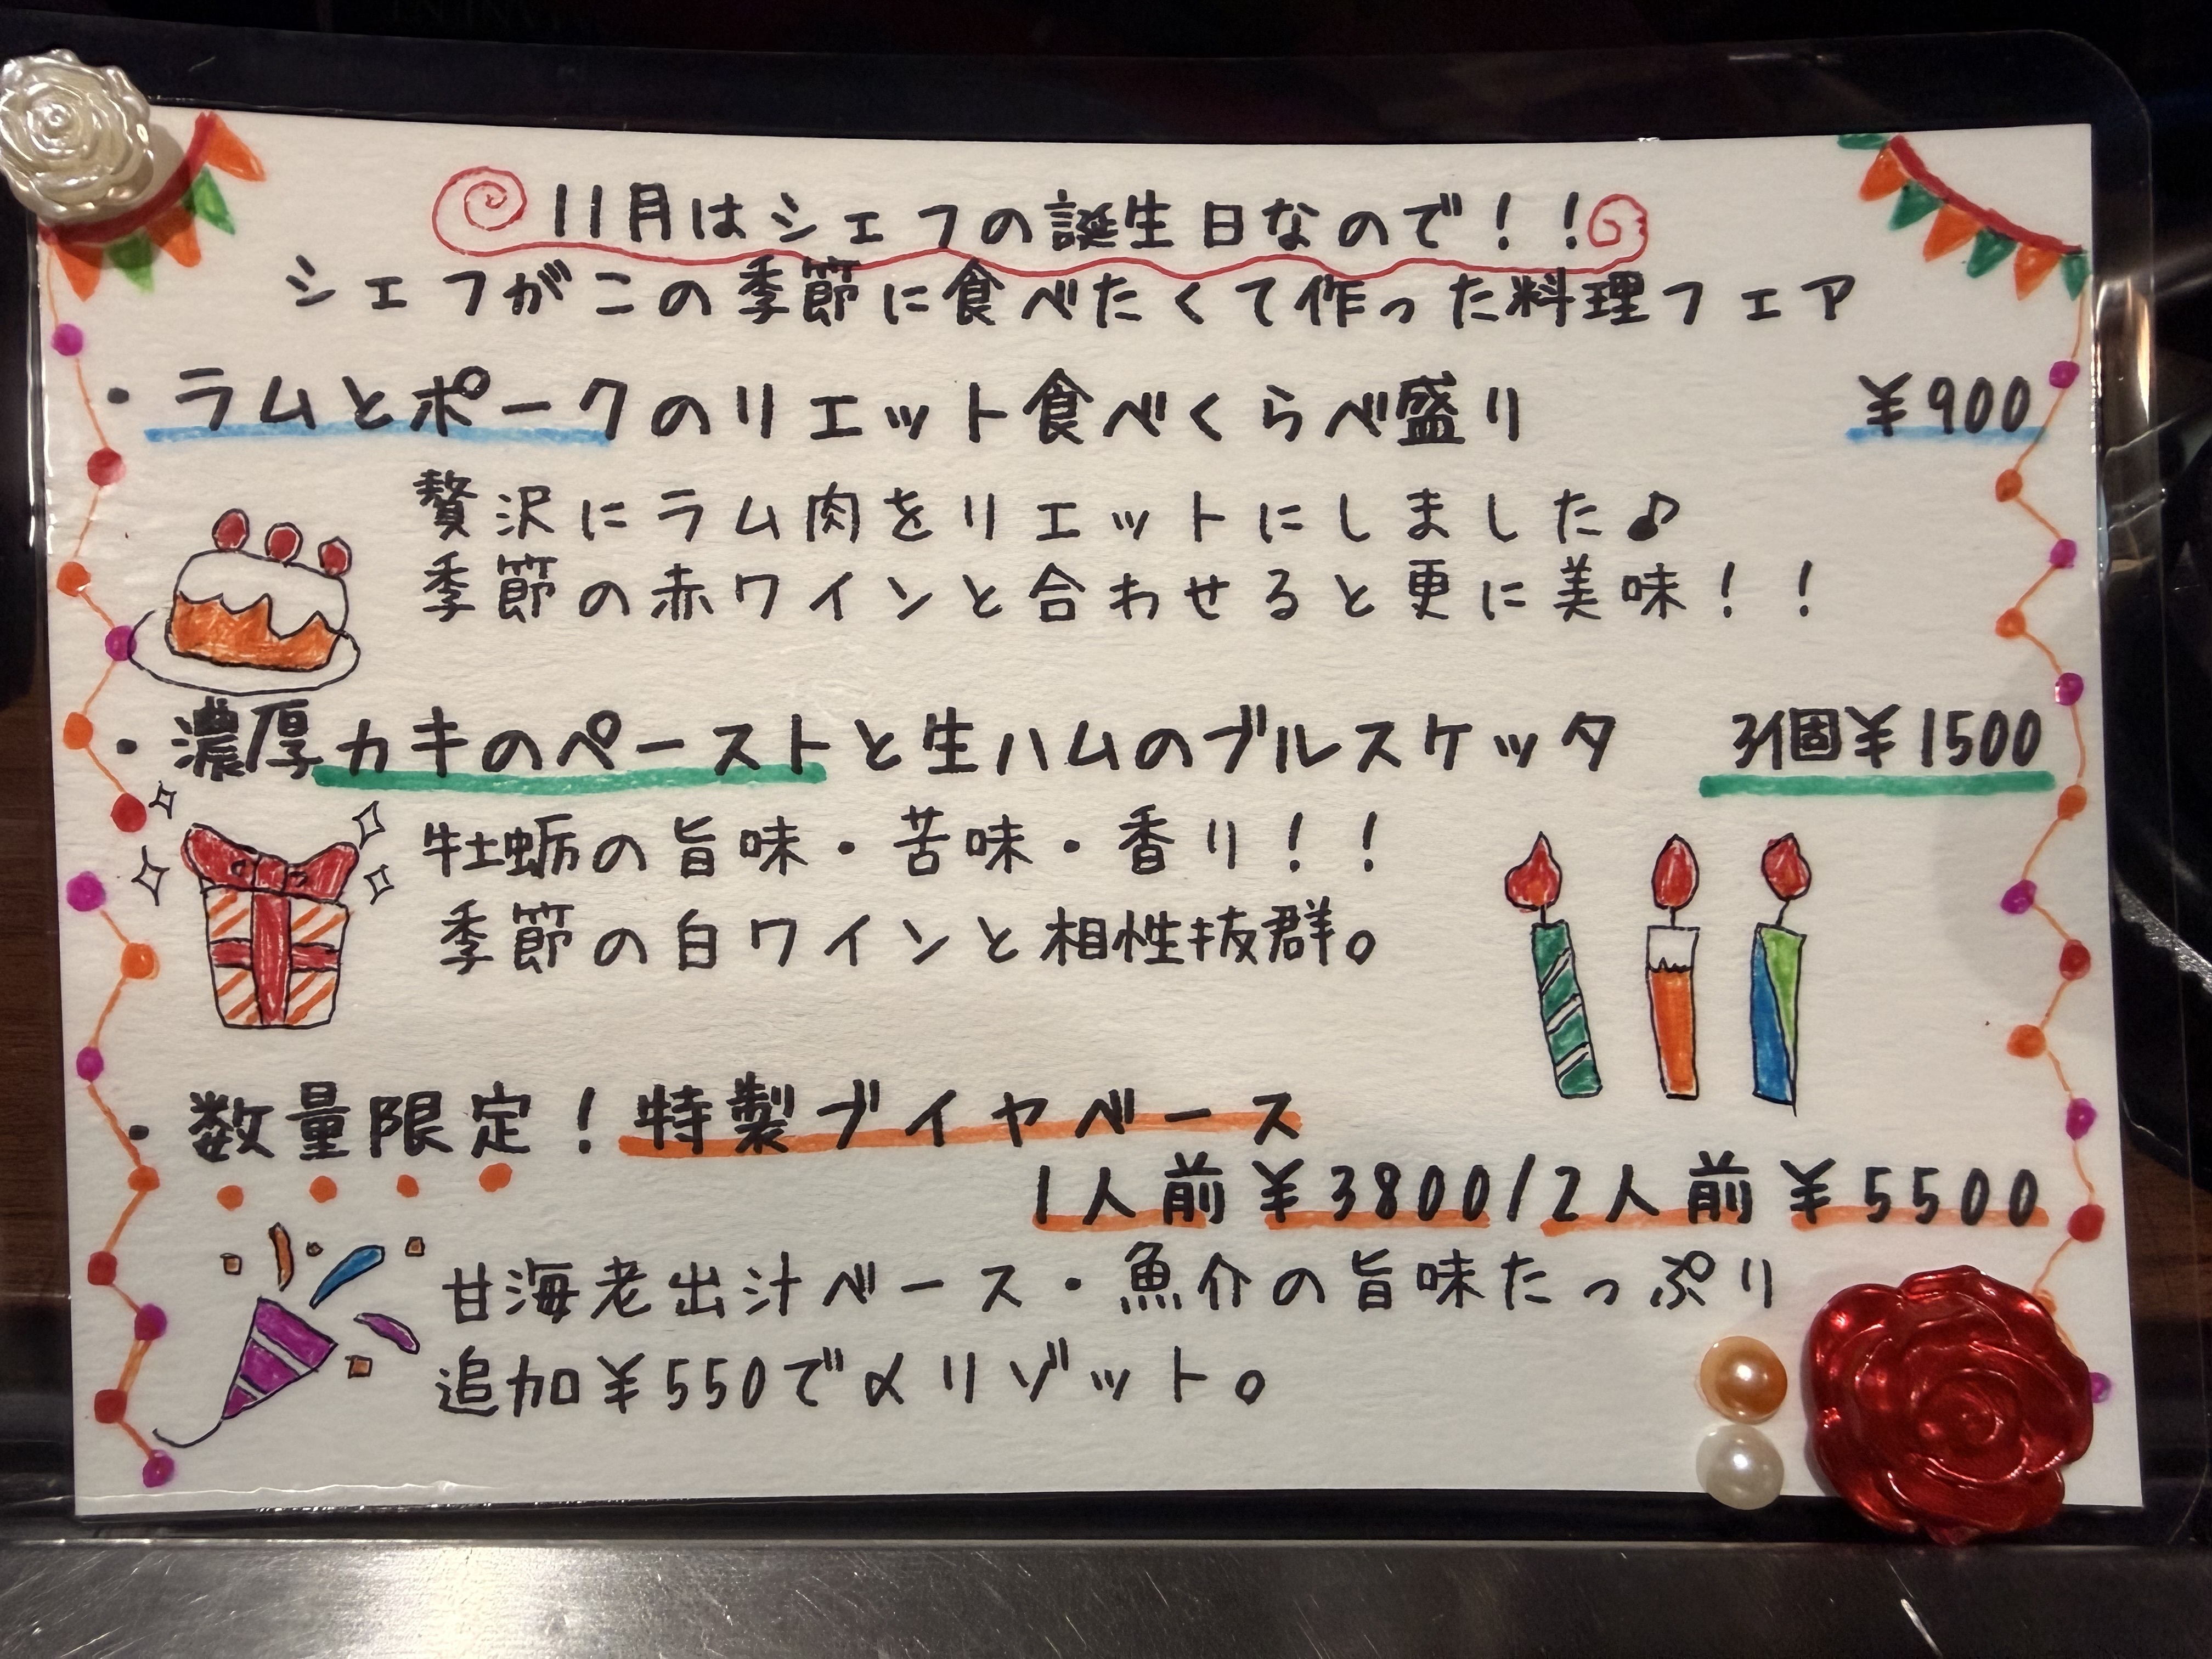 11月はシェフの誕生日なので！！
シェフがこの季節に食べたくて作った料理フェア
・ラムとポークのリエット食べくらべ盛り ¥900
贅沢にラム肉をリエットにしました♪
季節の赤ワインと合わせると更に美味！！
・濃厚カキのペーストと生ハムのブルスケッタ 3個¥1500
牡蛎の旨味・苦味・香り！！
季節の白ワインと相性抜群。
・数量限定！特製ブイヤベース
1人前¥3800/2人前¥5500
甘海老出汁ベース・魚介の旨味たっぷり
追加¥550で〆リゾット。